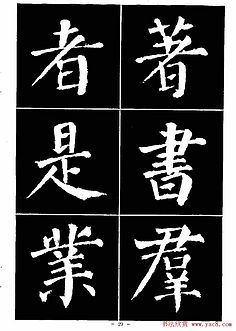 著書羣
者是業
- 29 -
书法欣赏 www.yac8.com